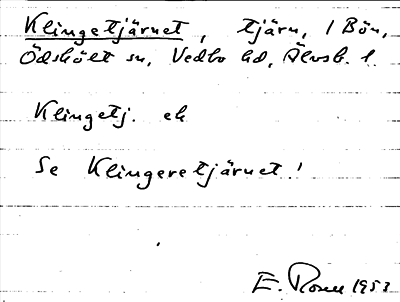 Klingetjärnet, tjärn, 1 Bön,
Ödskölt sn, Vedbo hd, Älvsb. l.
Klingetj. ek
Se Klingeretjärnet!
E. 1953